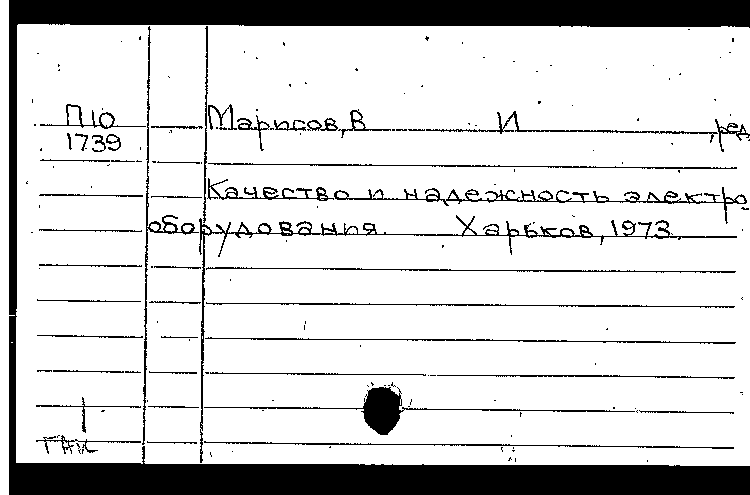 П10 Марисов, В И , ред
1739
Качество и надежность электро
оборудования. Харьков, 1973.